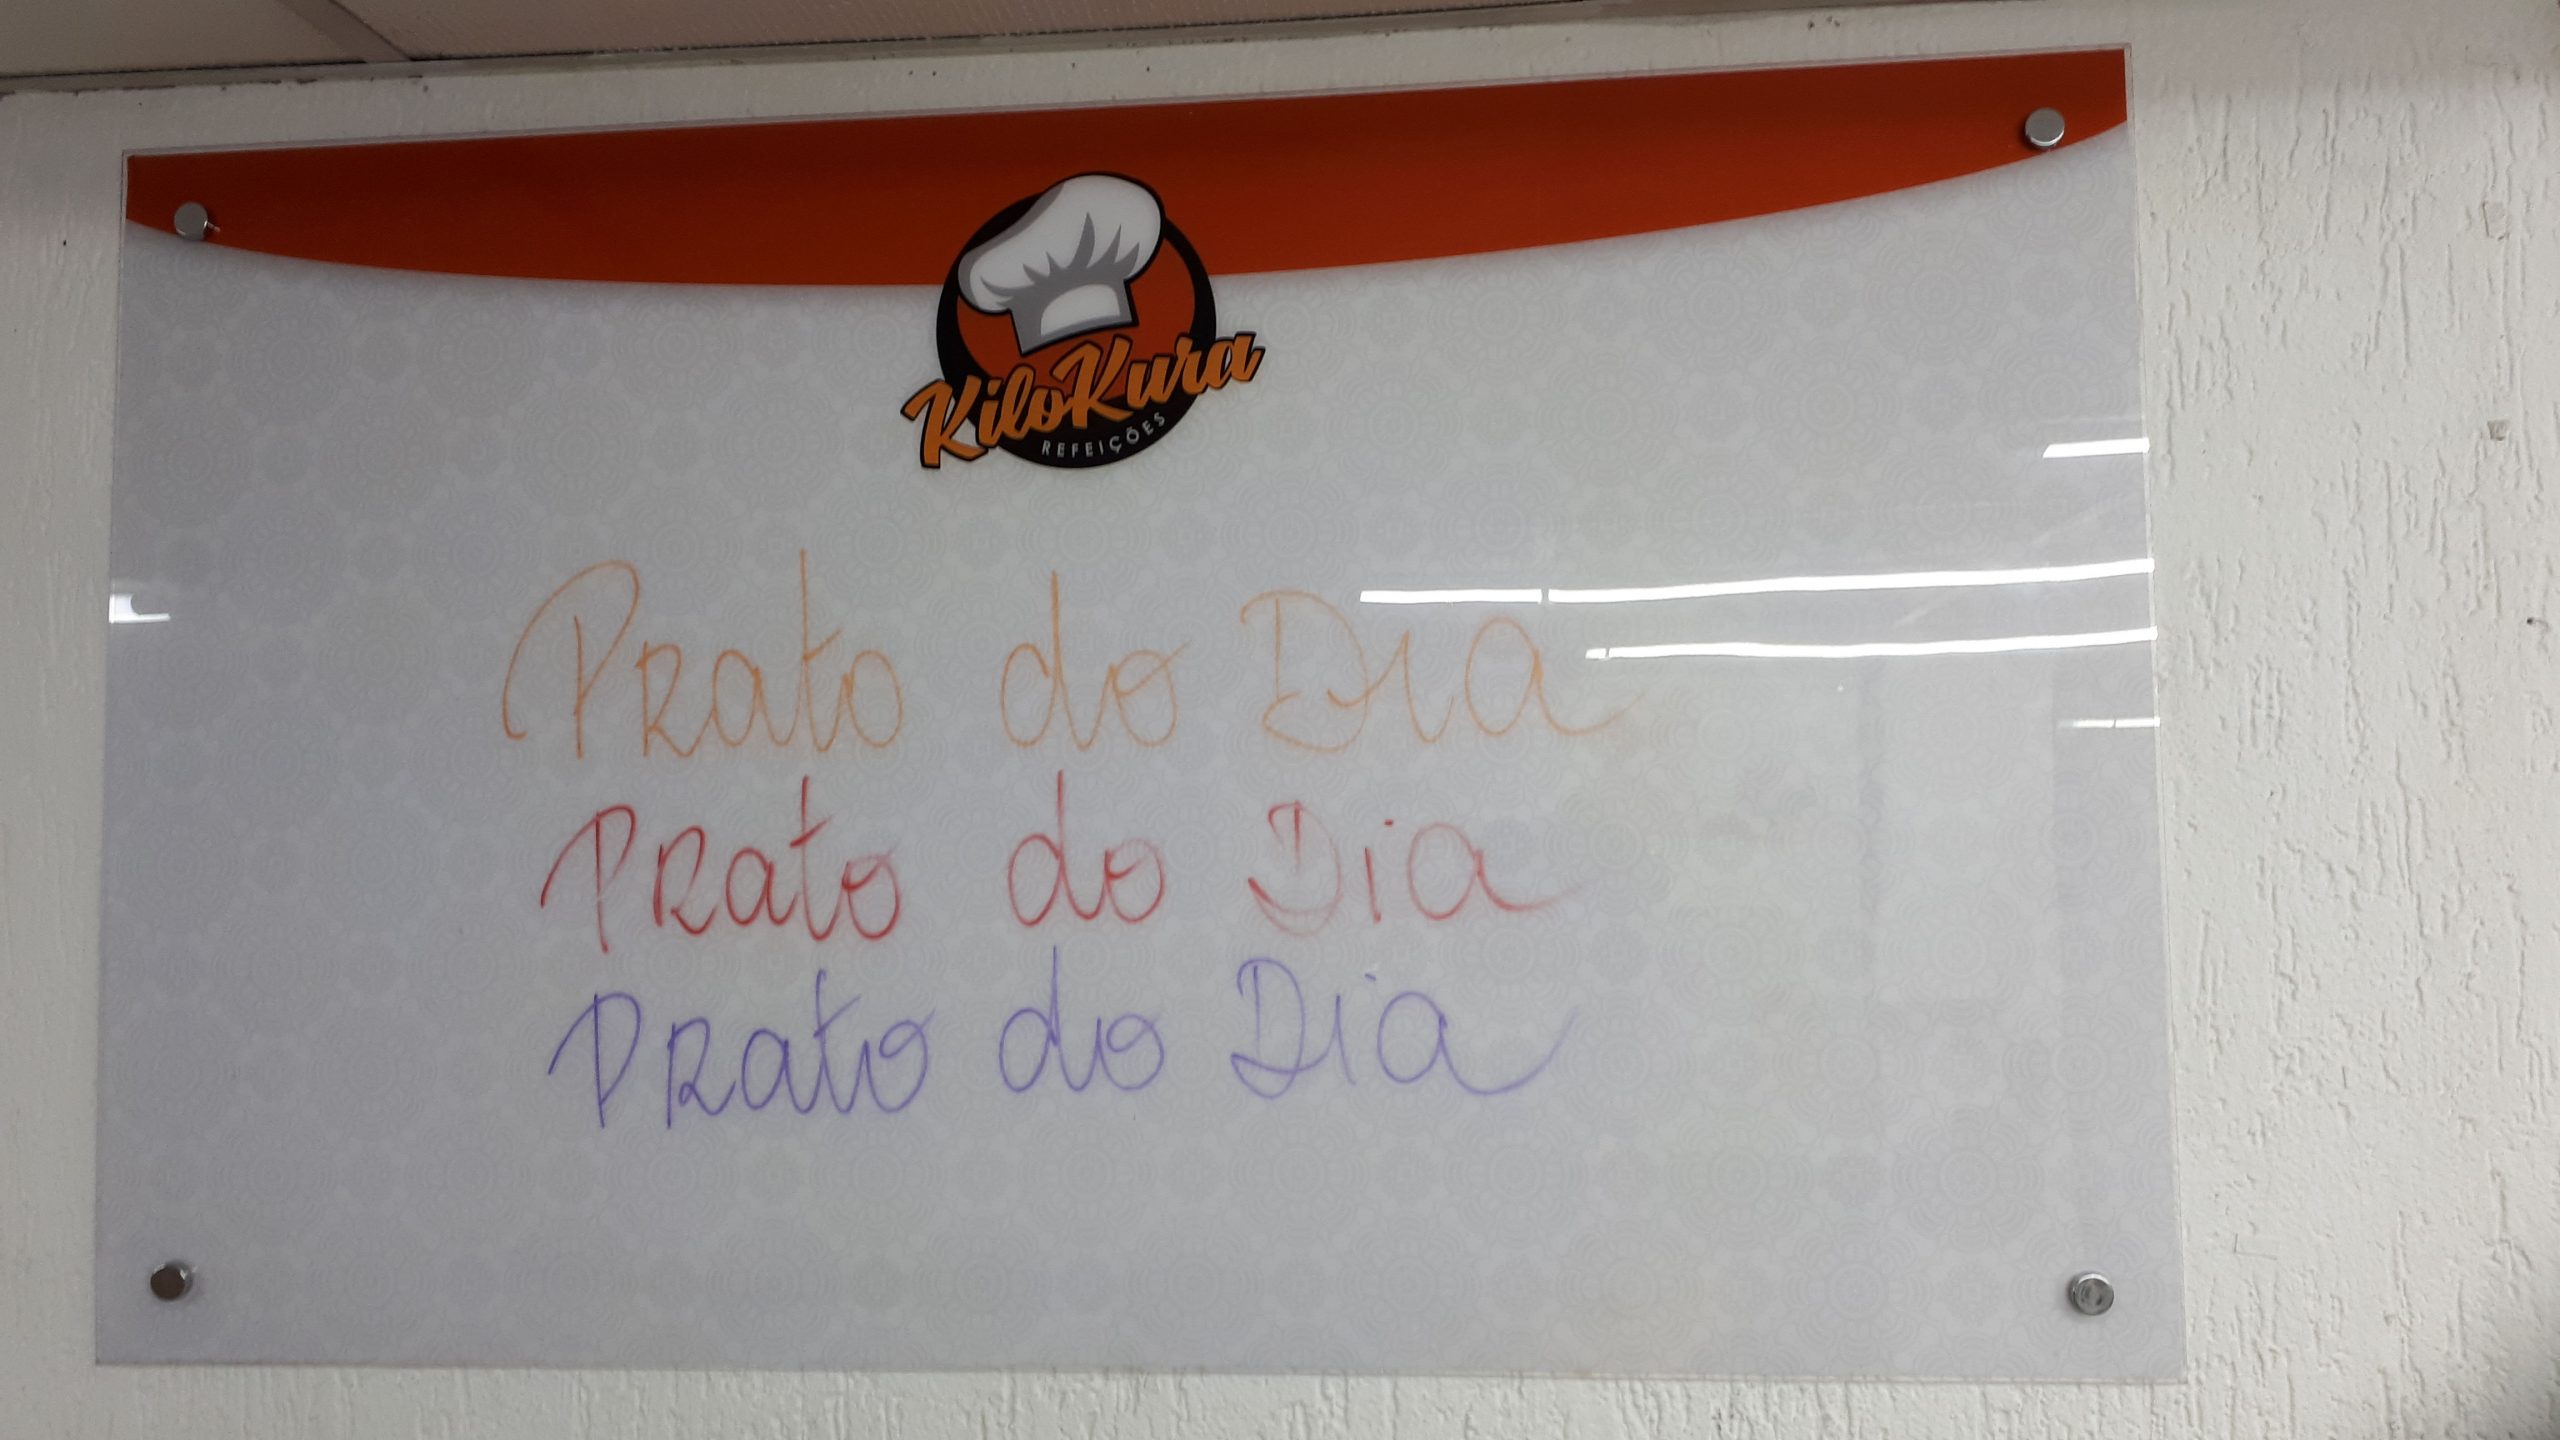 KiloKura
REFEIÇÕES
Prato do Dia
Prato do Dia
Prato do Dia